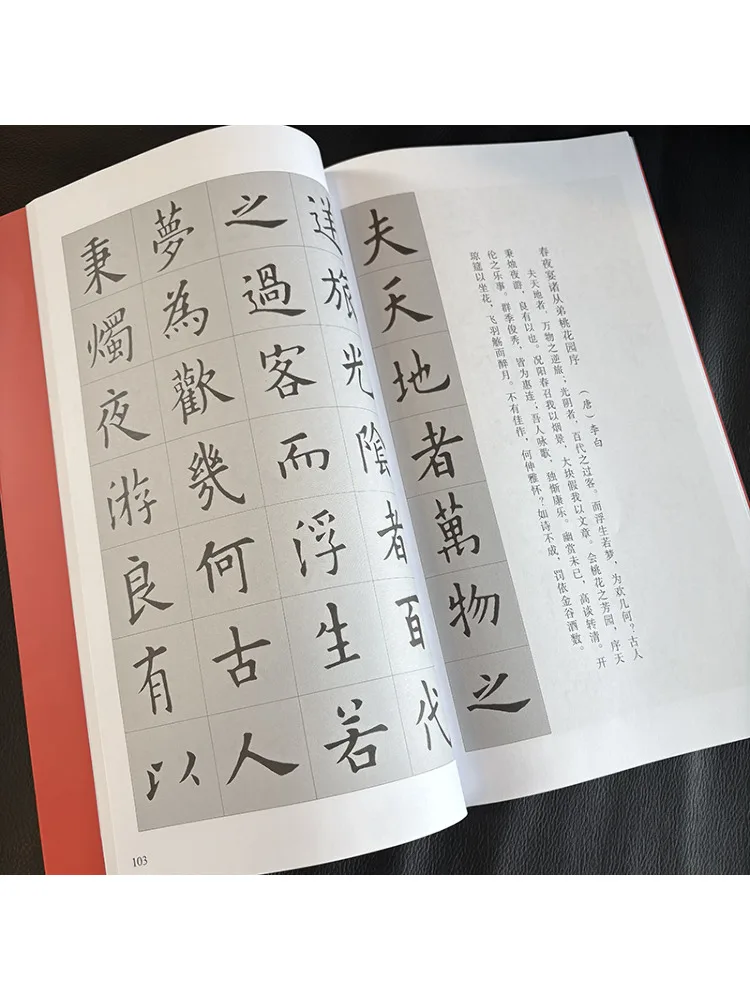 春夜宴诸从弟桃花园序 （唐）李白
夫天地者，万物之逆旅；光阴者，百代之过客。而浮生若梦，为欢几何？古人
秉烛夜游，良有以也。况阳春召我以烟景，大块假我以文章。会桃花之芳园，序天
伦之乐事。群季俊秀，皆为惠连；吾人咏歌，独惭康乐。幽赏未已，高谈转清。开
琼筵以坐花，飞羽觞而醉月。不有佳作，何伸雅怀？如诗不成，罚依金谷酒数。
夫天地者萬物之
逆旅光陰者百代
之過客而浮生若
夢為歡幾何古人
秉燭夜游良有以
103